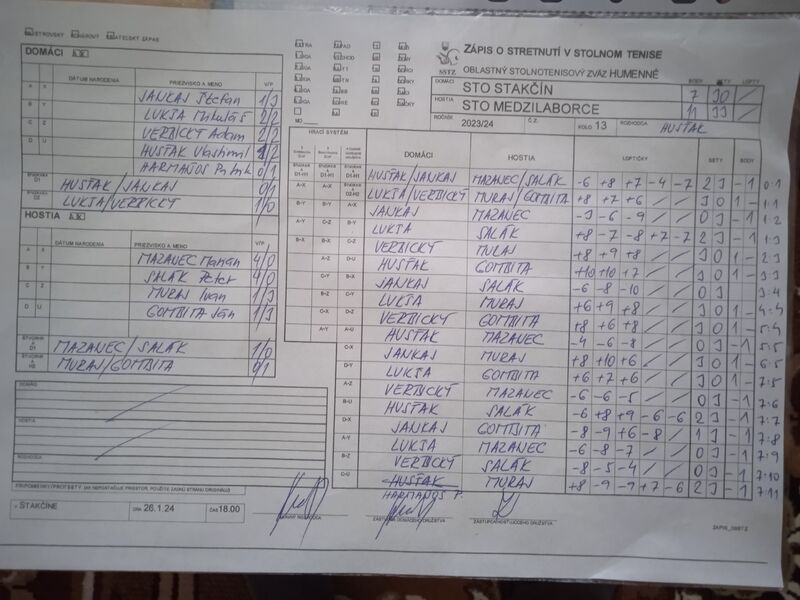 DOMÁCI
DÁTUM NARODENIA PRIEZVISKO A MENO V/P
A X JANKAJ Štefan 1/3
B Y LUKJA Mikuláš 2/2
C Z VERBICKÝ Adam 2/2
D U HUSŤAK Vlastimil 2/2
HARMANOŠ Patrik 0/1
HUSŤAK/JANKAJ 0/1
LUKJA/VERBICKÝ 1/0
HOSTIA
DÁTUM NARODENIA PRIEZVISKO A MENO V/P
A X MAZANEC Marián 4/0
B Y SALÁK Peter 4/0
C Z MURAJ Ivan 1/3
D U GOMBITA Ján 1/3
MAZANEC/SALÁK 1/0
MURAJ/GOMBITA 0/1
DOMÁCI
HOSTIA
ROZHODCA
V STAKČÍNE DŇA 26.1.24 ČAS 18.00
ZÁPIS O STRETNUTÍ V STOLNOM TENISE
SSTZ OBLASTNÝ STOLNOTENISOVÝ ZVÄZ HUMENNÉ
BODY SETY LOPTY
DOMÁCI STO STAKČÍN 7 30 /
HOSTIA STO MEDZILABORCE 11 33 /
ROČNÍK 2023/24 Č.Z. KOLO 13 ROZHODCA HUSŤAK
HRACÍ SYSTÉM DOMÁCI HOSTIA LOPTIČKY SETY BODY
HUSŤAK/JANKAJ MAZANEC/SALÁK -6 +8 +7 -4 -7 2 3 - 1 0:1
LUKJA/VERBICKÝ MURAJ/GOMBITA +8 +7 +6 / / 3 0 1 - 1:1
JANKAJ MAZANEC -3 -6 -9 / / 0 3 - 1 1:2
LUKJA SALÁK +8 -7 -8 +7 -7 2 3 - 1 1:3
VERBICKÝ MURAJ +8 +9 +8 / / 3 0 1 - 2:3
HUSŤAK GOMBITA +10 +10 +7 / / 3 0 1 - 3:3
JANKAJ SALÁK -6 -8 -10 / / 0 3 - 1 3:4
LUKJA MURAJ +6 +9 +8 / / 3 0 1 - 4:4
VERBICKÝ GOMBITA +8 +6 +8 / / 3 0 1 - 5:4
HUSŤAK MAZANEC -4 -6 -8 / / 0 3 - 1 5:5
JANKAJ MURAJ +8 +10 +6 / / 3 0 1 - 6:5
LUKJA GOMBITA +6 +7 +6 / / 3 0 1 - 7:5
VERBICKÝ MAZANEC -6 -6 -5 / / 0 3 - 1 7:6
HUSŤAK SALÁK -6 +8 +9 -6 -6 2 3 - 1 7:7
JANKAJ GOMBITA -8 -9 +6 -8 / 1 3 - 1 7:8
LUKJA MAZANEC -6 -8 -7 / / 0 3 - 1 7:9
VERBICKÝ SALÁK -8 -5 -4 / / 0 3 - 1 7:10
HUSŤAK MURAJ +8 -9 -9 +7 -6 2 3 - 1 7:11
HARMANOŠ P.